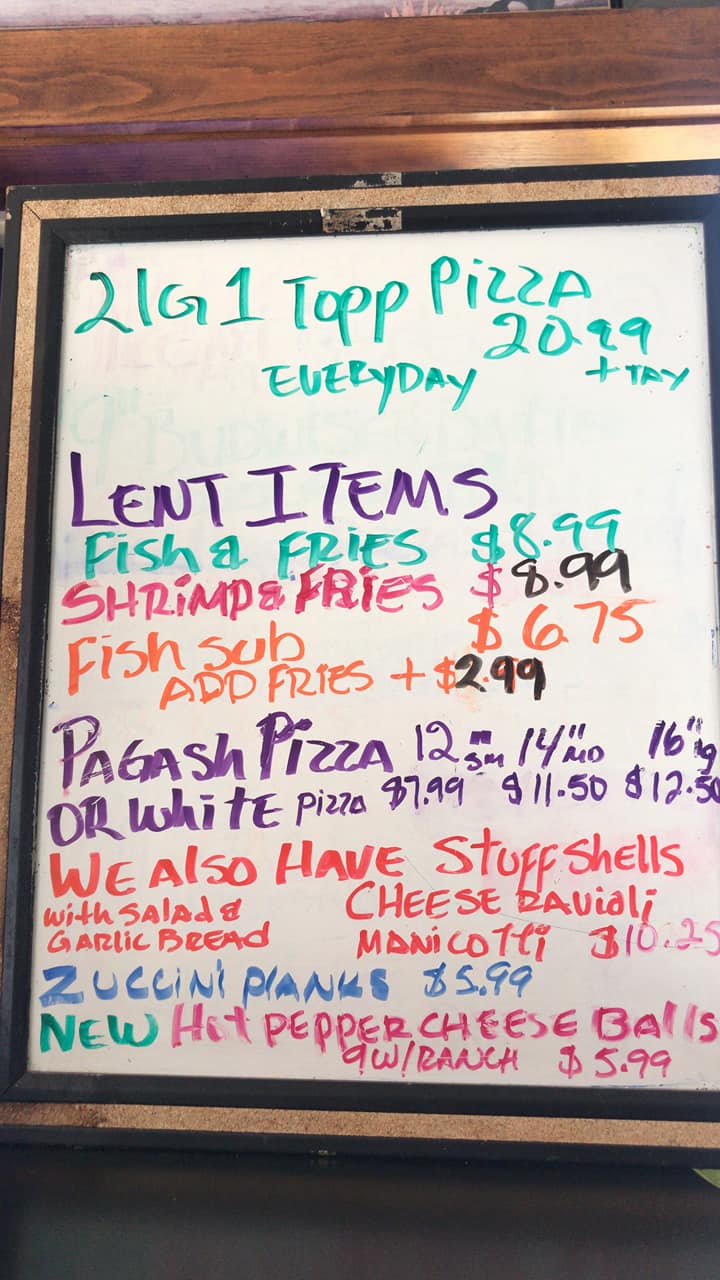 2 lG 1 Topp Pizza
20.99
EVERYDAY + TAX
LENT ITEMS
Fish & FRIES $8.99
SHRIMP & FRIES $8.99
Fish sub $6.75
ADD FRIES + $2.99
PAGASH PIZZA 12" sm 14" MD 16" lg
OR White Pizza $7.99 $11.50 $12.50
WE Also HAVE Stuff Shells
with SALAD & CHEESE RAVioli
GARLIC BREAD MANiCOTTi $10.25
ZUCCINI PLANKS $5.99
NEW Hot PEPPER CHEESE Balls
9 W/RANCH $5.99